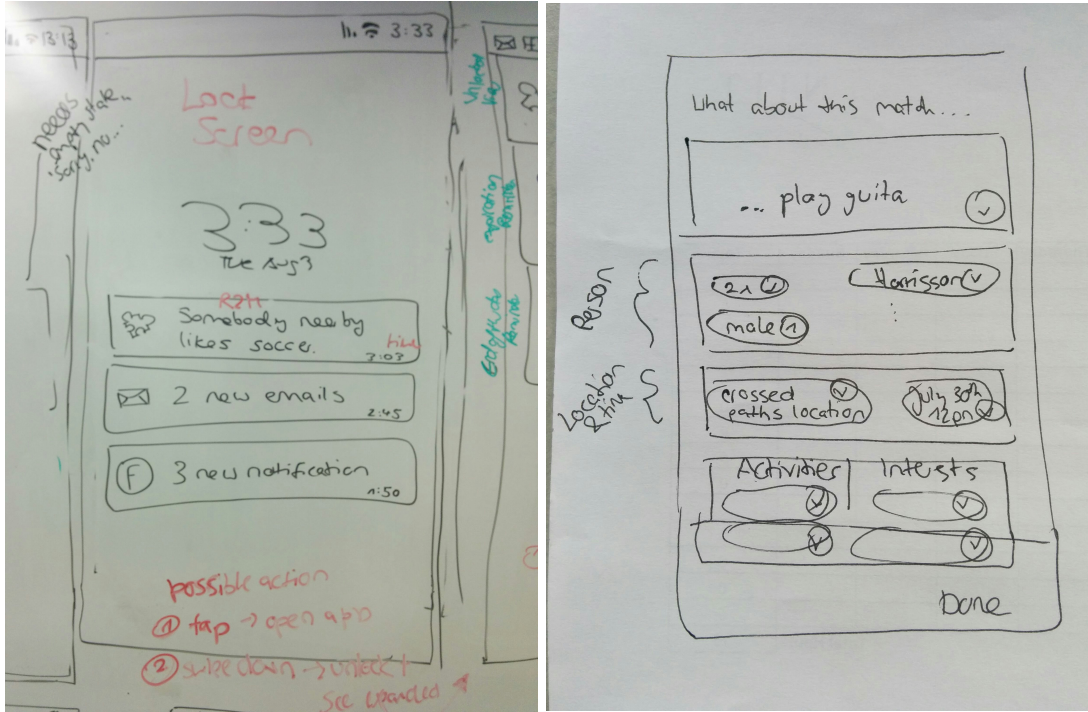 3:13
3:33
Lock
Screen
needs
empty state..
Sorry, no...
3:33
Tue Aug 3
R2H
Somebody neerby
likes soccer.
time
3:03
2 new emails
2:45
F
3 new notification
1:50
possible action
1 tap → open app
2 swipe down → unlock +
See expanded
expiration
What about this match....
... play guita
Person
21
Harrisson
male
Location
& time
crossed
paths location
July 30th
12pm
Activities
Intersts
Done